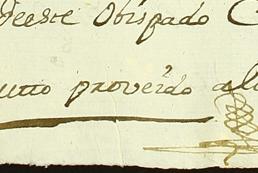 deeste Obispado C
proveido a